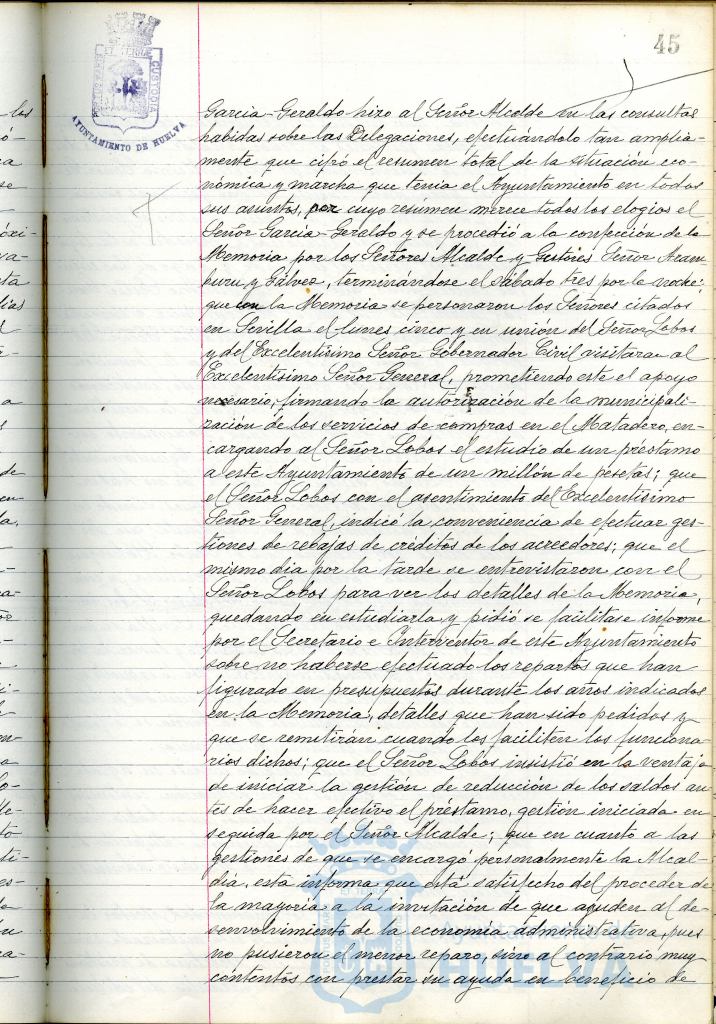 45
AYUNTAMIENTO DE HUELVA
Garcia-Geraldo hizo al Señor Alcalde en las consultas
habidas sobre las Delegaciones, efectuándolo tan amplia-
mente que cifró el resumen total de la situación eco-
nómica y marcha que tenia el Ayuntamiento en todos
sus asuntos, por cuyo resúmen merece todos los elogios el
Señor Garcia-Geraldo y se procedió a la confección de la
Memoria por los Señores Alcalde y Gestores Señor Aram-
buru y Gálvez, terminándose el sábado tres por la noche;
que con la Memoria se personaron los Señores citados
en Sevilla el lunes cinco y en unión del Señor Lobos
y del Excelentísimo Señor Gobernador Civil visitaron al
Excelentísimo Señor General, prometiendo este el apoyo
necesario, firmando la autorización de la municipali-
zación de los servicios de compras en el Matadero, en-
cargando al Señor Lobos el estudio de un préstamo
a este Ayuntamiento de un millón de pesetas; que
el Señor Lobos con el asentimiento del Excelentísimo
Señor General, indicó la conveniencia de efectuar ges-
tiones de rebajas de créditos de los acreedores; que el
mismo dia por la tarde se entrevistaron con el
Señor Lobos para ver los detalles de la Memoria,
quedando en estudiarla y pidió se facilitase informe
por el Secretario e Interventor de este Ayuntamiento
sobre no haberse efectuado los repartos que han
figurado en presupuestos durante los años indicados
en la Memoria, detalles que han sido pedidos y
que se remitirán cuando los faciliten los funciona-
rios dichos; que el Señor Lobos insistió en la ventaja
de iniciar la gestión de reducción de los saldos an-
tes de hacer efectivo el préstamo, gestión iniciada en
seguida por el Señor Alcalde; que en cuanto a las
gestiones de que se encargó personalmente la Alcal-
dia, esta informa que está satisfecho del proceder de
la mayoria a la invitación de que ayuden al de-
senvolvimiento de la economia administrativa, pues
no pusieron el menor reparo, sino al contrario muy
contentos con prestar su ayuda en beneficio de
Ayuntamiento de
HUELVA